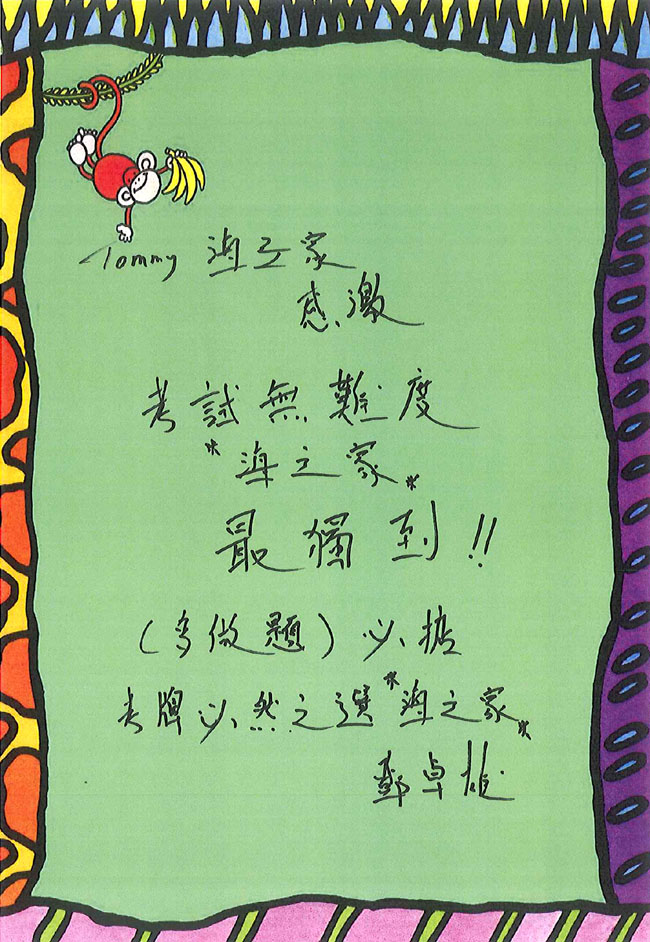 Tommy 海之家
感激
考試無難度
"海之家"
最獨到!!
(多做題)必掂
考牌必然之選"海之家"
鄭卓雄